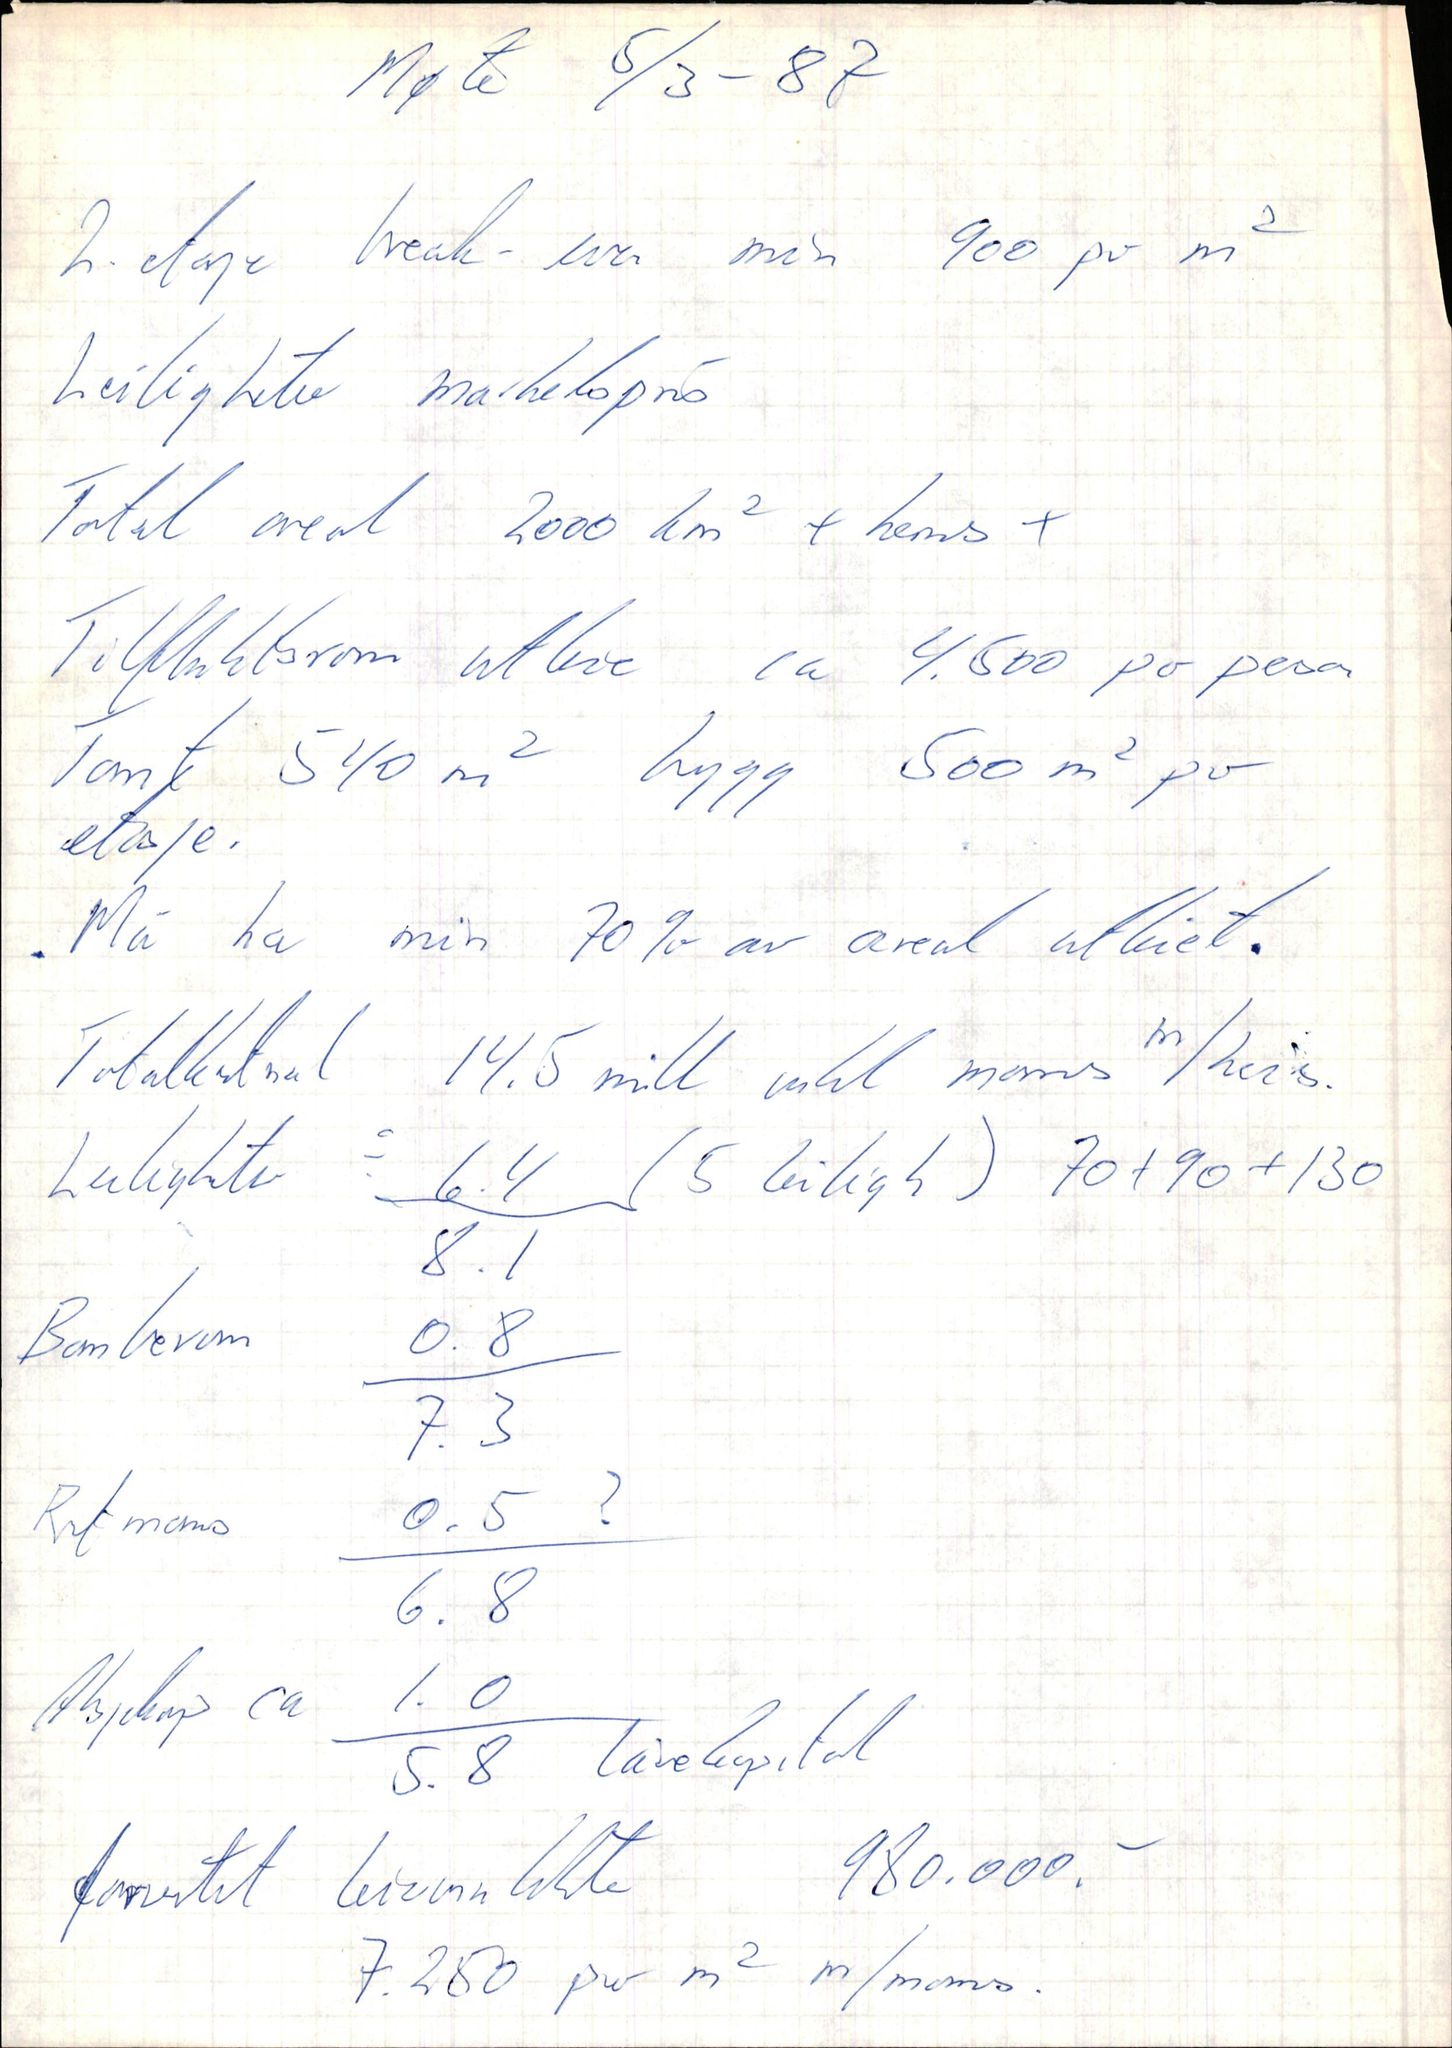 Møte 5/3-87
2. etasje break-even min 900 pr m²
Leiligheter markedspris
Total areal 2000 km² + hems +
Tilfluktsrom utleie ca 4.500 pr person
Tomt 540 m² bygg 500 m² pr
etasje.
. Må ha min 70% av areal utleiet.
Totalkostnad 14.5 mill inkl moms m/heis.
Leiligheter ÷ 6.4 (5 leiligh) 70+90+130
8.1
Bomberom 0.8
7.3
Ref moms 0.5 ?
6.8
Aksjekap ca 1.0
5.8 lånekapital
forventet leieinntekter 980.000.-
7.250 pr m² m/moms.